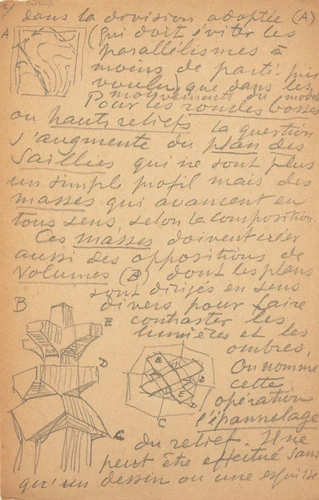 dans la division adoptée (A)
A
(qui doit éviter les
parallélismes à
moins de parti-pris
voulu que dans les
mouvements ou
Pour les rondes bosses
ou hauts reliefs la question
s'augmente du plan des
saillies qui ne sont plus
un simple profil mais des
masses qui avancent en
tous sens, selon la composition.
Ces masses doivent créer
aussi des oppositions de
volumes (B) dont les plans
sont dirigés en sens
B
divers pour faire
E
contraster les
lumières et les
ombres.
D
On nomme
cette
opération
l'épannelage
C
du relief. Il ne
peut être effectué sans
qu'un dessin ou une esquisse